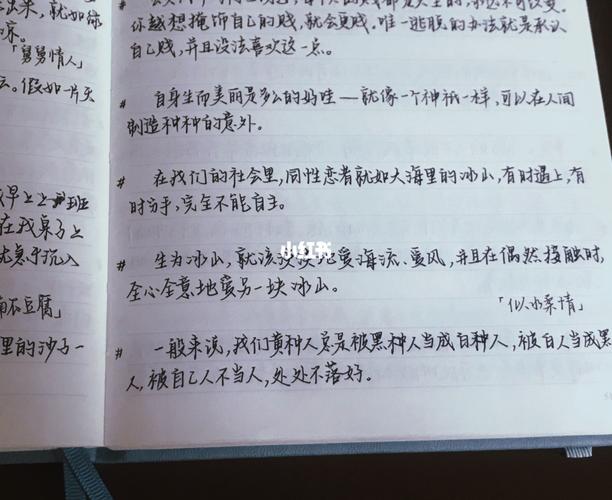 出来，就如
凉。
「舅舅情人」
云。假如一片天
早上
班
在我桌子上
沉入
石豆腐」
里的沙子一
贱都是天生的，永远不可改变。
你越想掩饰自己的贱，就会更贱。唯一逃脱的办法就是承认
自己贱，并且设法喜欢这一点。
# 自身生而美丽是多么的好哇—就像一个神祇一样，可以在人间
制造种种的意外。
# 在我们的社会里，同性恋者就如大海里的冰山，有时遇上，有
时分手，完全不能自主。
小红书
# 生为冰山，就该淡淡地爱海流、爱风，并且在偶然接触时，
全心全意地爱另一块冰山。
「似水柔情」
# 一般来说，我们黄种人总是被黑种人当成白种人，被白人当成黑
人，被自己人不当人，处处不落好。